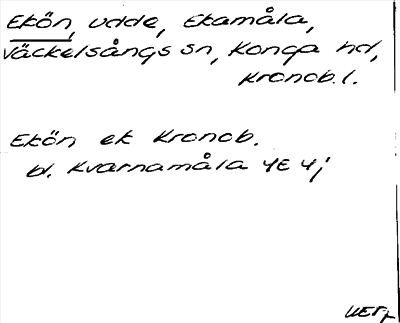 Ekön, udde, Ekamåla,
Väckelsångs sn, Konga hd,
Kronob. l.
Ekön ek Kronob.
bl. Kvarnamåla 4E 4j